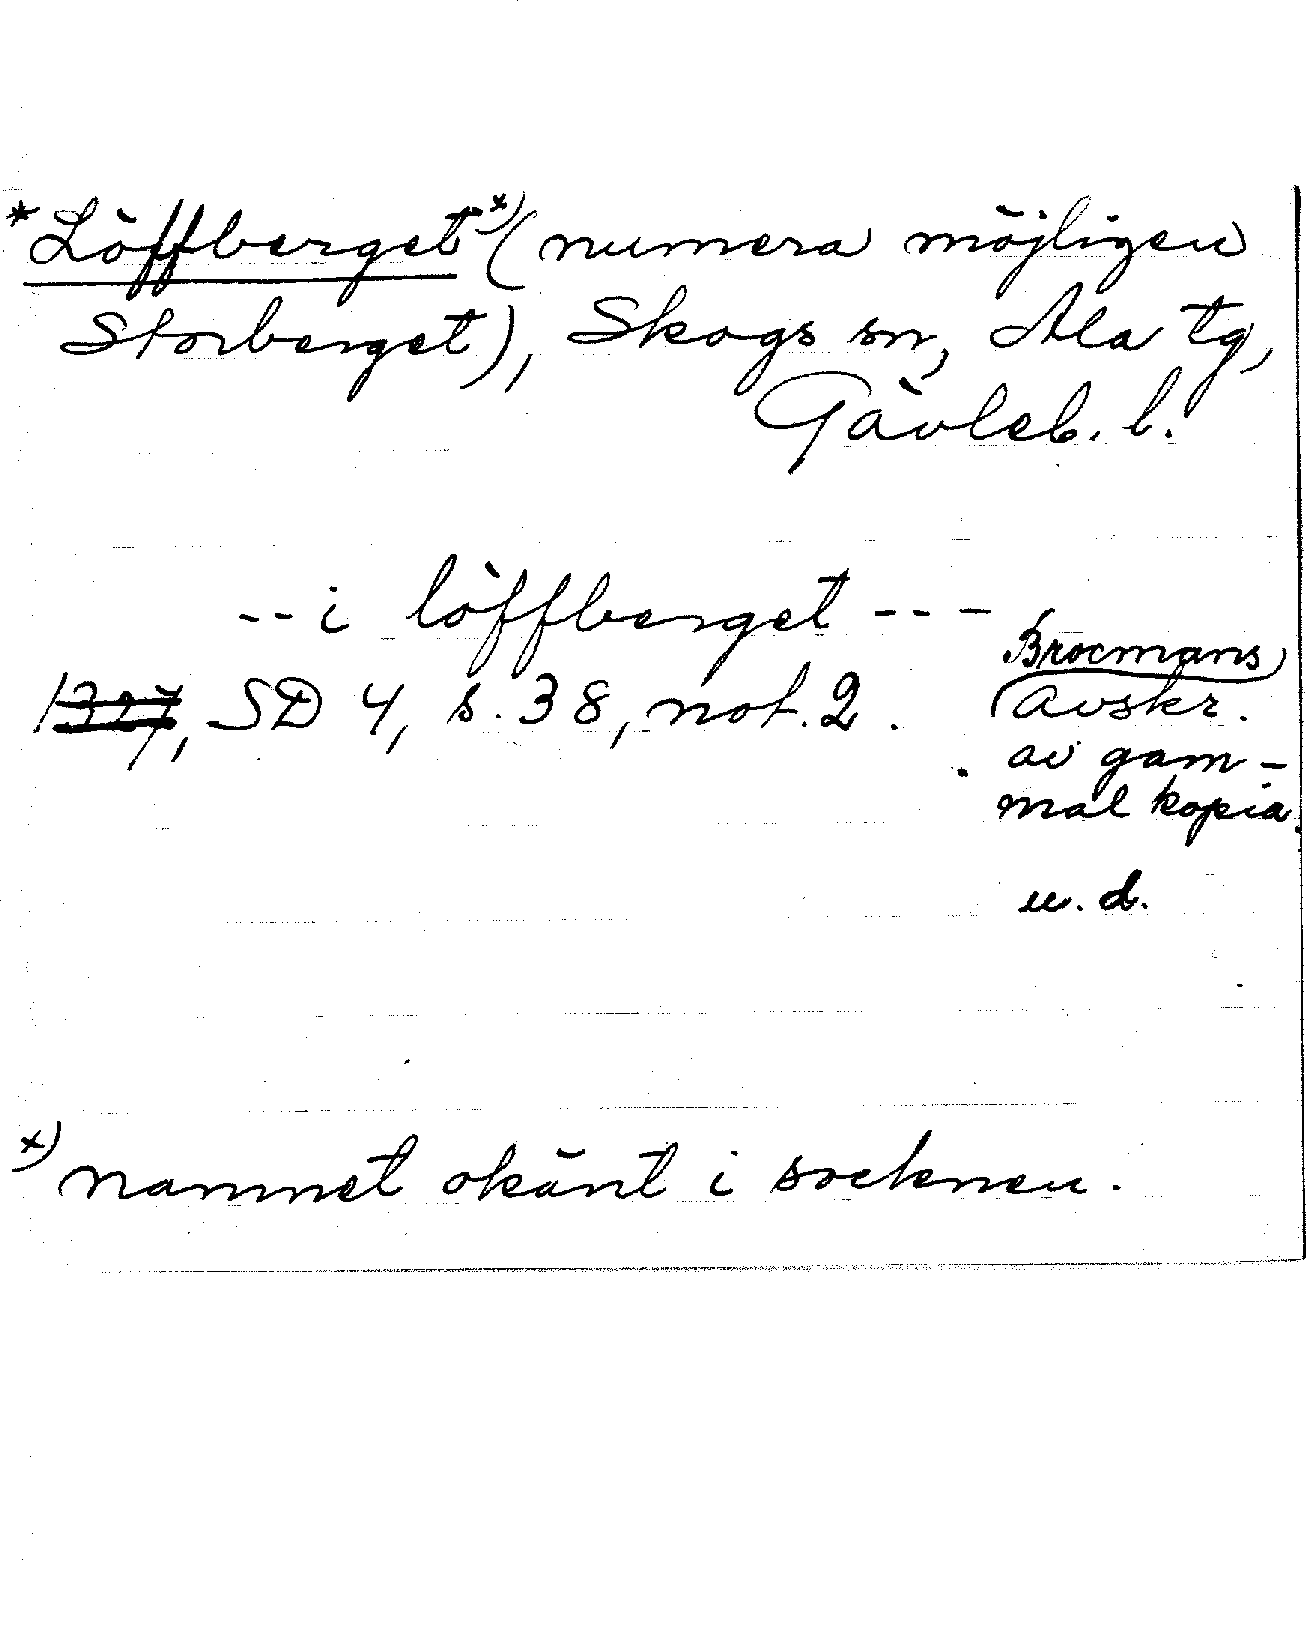 *Löffberget x) (numera möjligen
Storberget), Skogs sn, Ala tg,
Gävleb. l.
-- i löffberget ---
1327, SD 4, s. 38, not. 2.
Brocmans
avskr.
av gam-
mal kopia.
u. d.
x) namnet okänt i socknen.